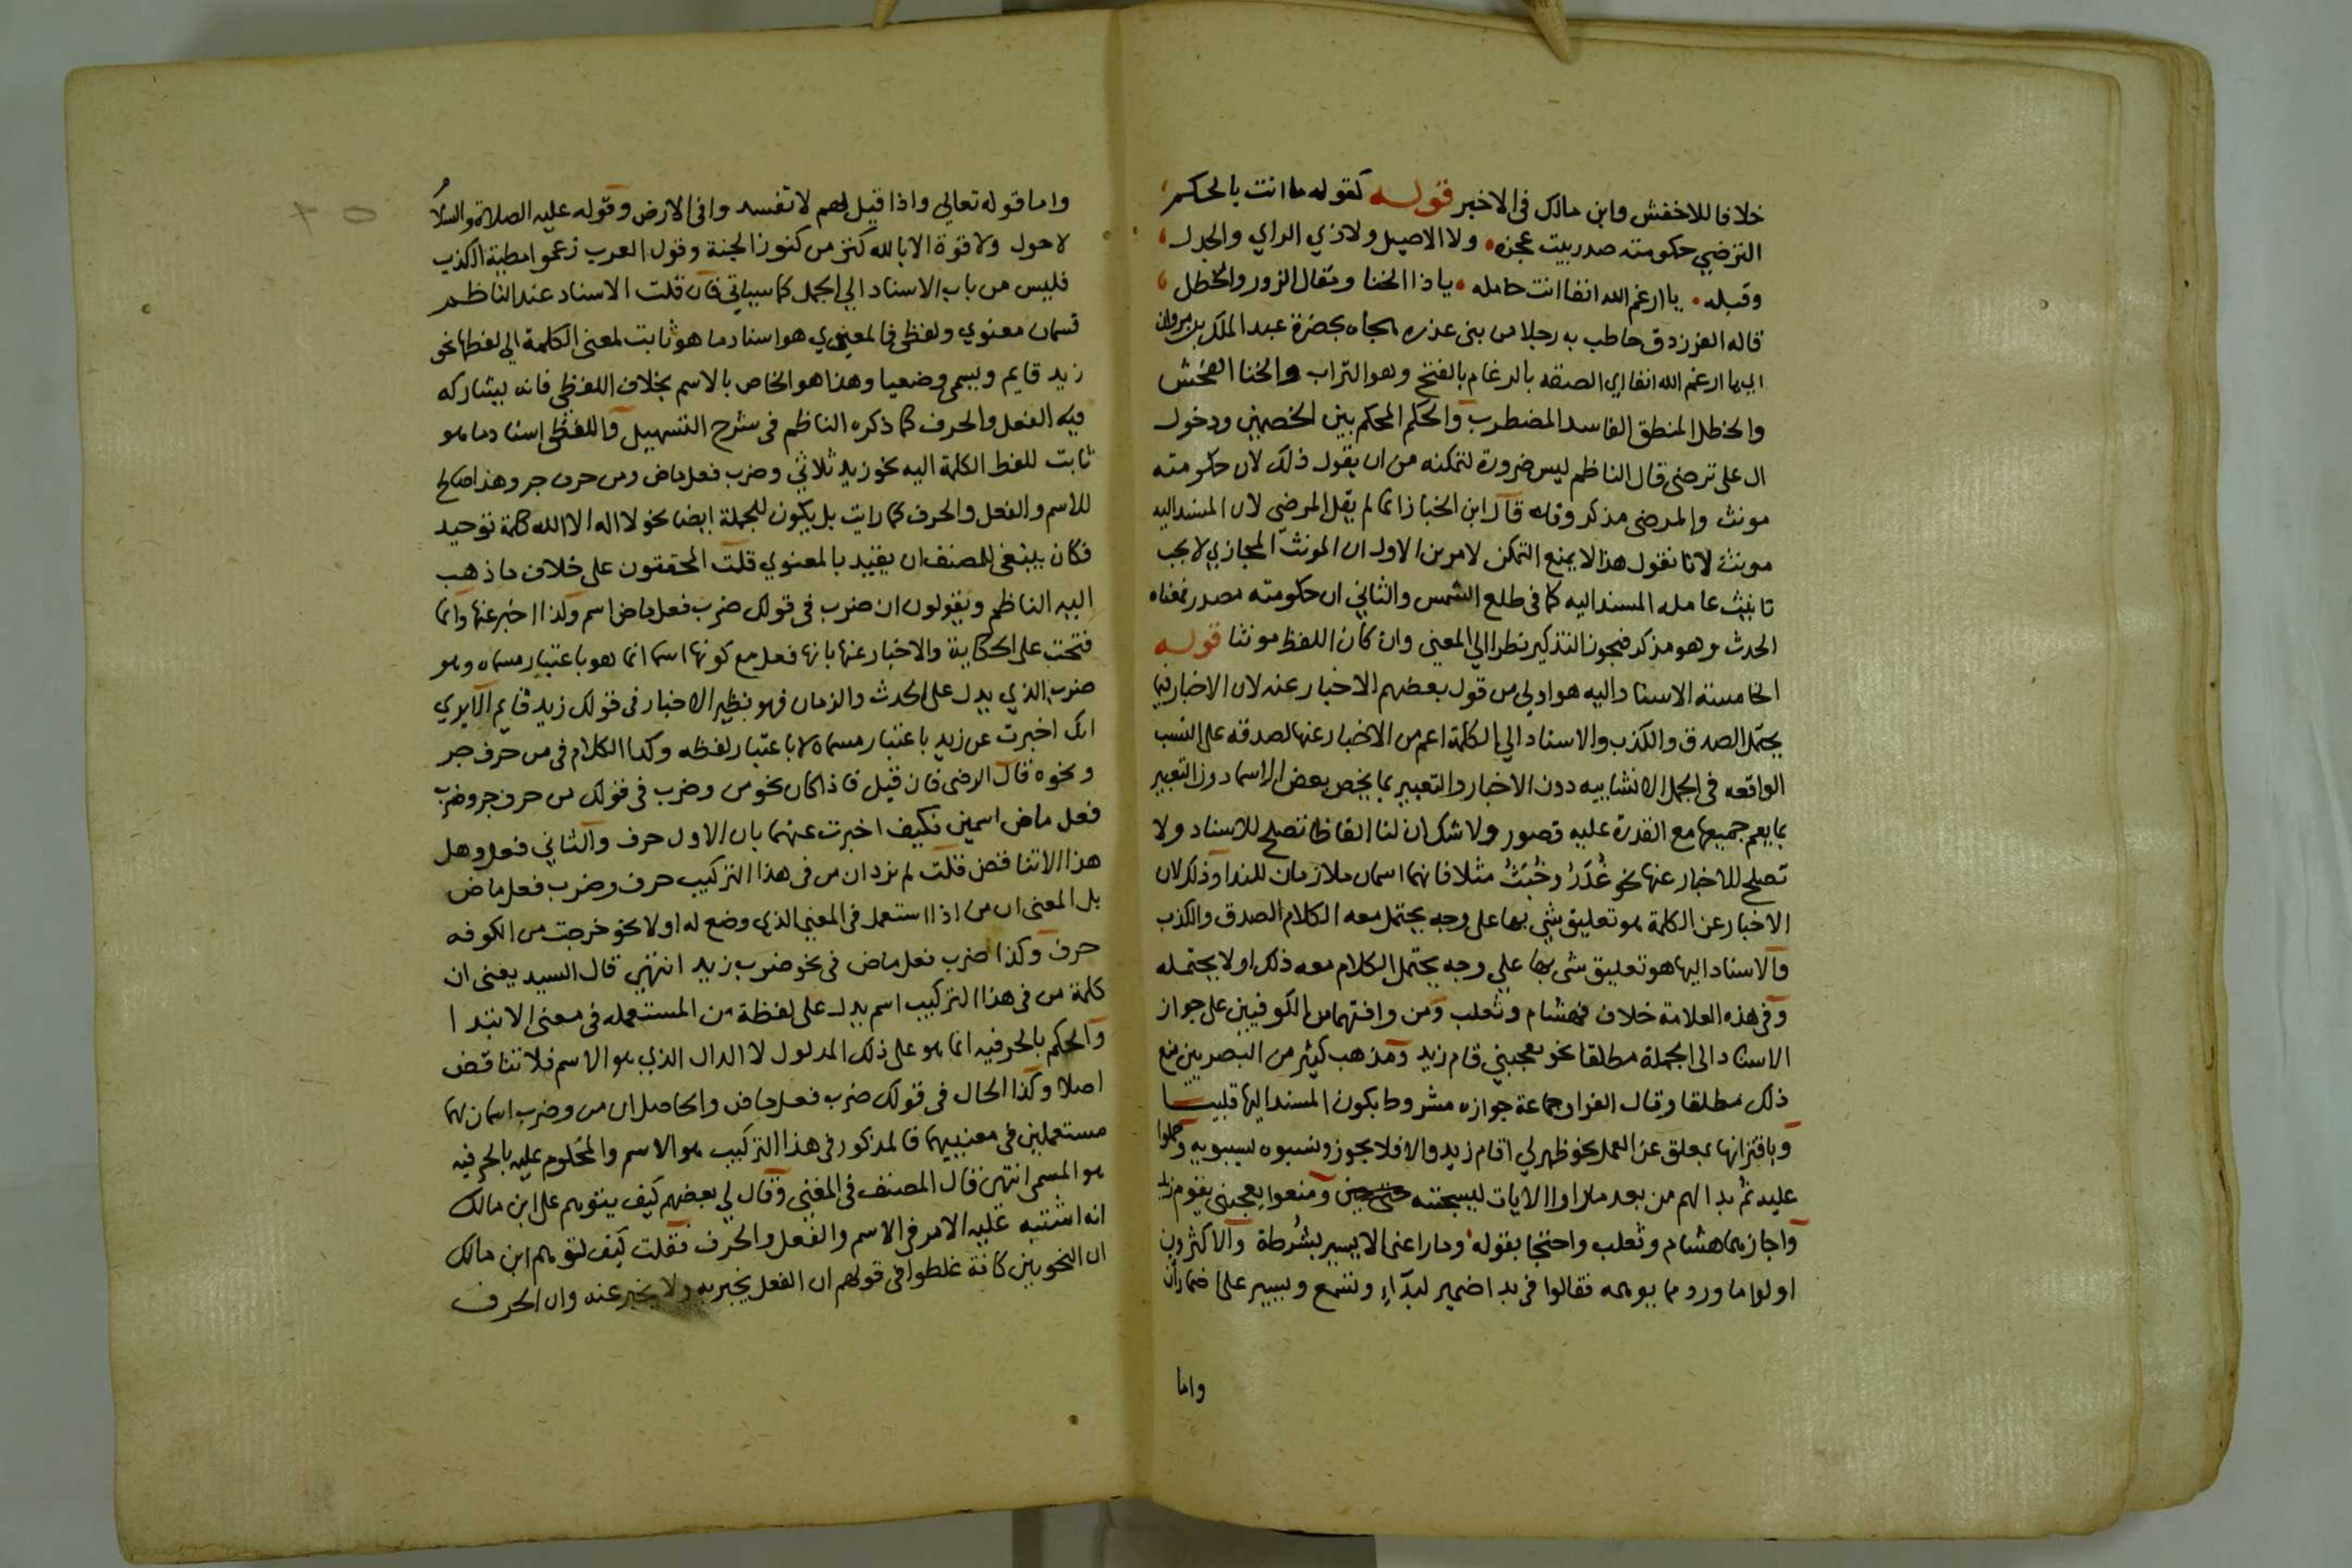 خلافا للاخفش وابن مالك في الاخير قوله كقوله ما انت بالحكم
الترضي حكومته صدر بيت عجزه ولا الاصيل ولا ذي الراي والجدل
وقبله يا ارغم الله انفا انت حامله يا ذا الخنا ومقال الزور والخطل
قاله الفرزدق خاطب به رجلا من بني عذره هجاه بحضرة عبد الملك بن مروان
ارغم الله انفا اي الصقه بالرغام بالفتح وهو التراب والخنا الفحش
والخطل المنطق الفاسد المضطرب والحكم المحكم بين الخصمين ودخول
ال على ترضى قال الناظم ليس ضرورة لتمكنه من ان يقول ذلك لان حكومته
مونث والمرضي مذكر وقد قال ابن الخباز انما لم يقل المرضي لان المسند اليه
مونث لانا نقول هذا لا يمنع التمكن لامرين الاول ان المونث المجازي لا يجب
تانيث عامله المسند اليه كما في طلع الشمس والثاني ان حكومته مصدر بمعناه
الحدث وهو مذكر فيجوز التذكير نظرا الي المعني وان كان اللفظ مونثا قوله
الخامسة الاسناد اليه هو اولي من قول بعضهم الاخبار عنه لان الاخبار فيما
يحتمل الصدق والكذب والاسناد الي الكلمة اعم من الاخبار عنها لصدقه على النسب
الواقعه في الجمل الانشاييه دون الاخبار والتعبير بما يخص بعض الاسما دون التعبير
بما يعم جميعها مع القدرة عليه قصور ولا شك ان لنا الفاظا تصلح للاسناد ولا
تصلح للاخبار عنها نحو غُدَرُ وخُبَثُ مثلا فانهما اسمان ملازمان للندا وذلك لان
الاخبار عن الكلمة هو تعليق شي بها على وجه يحتمل معه الكلام الصدق والكذب
والاسناد اليها هو تعليق شي بها علي وجه يحتمل الكلام معه ذلك او لا يحتمله
وفي هذه العلامة خلاف فهشام وثعلب ومن وافقهما من الكوفيين على جواز
الاسناد الى الجملة مطلقا نحو يعجبني قام زيد ومذهب كثير من البصريين منع
ذلك مطلقا وقال الفرا وجماعة جوازه مشروط بكون المسند اليها قلبيا
وباقترانها بمعلق عن العمل نحو ظهر لي اقام زيد والا فلا يجوز ونسبوه لسيبويه وحملوا
عليه ثم بدا لهم من بعد ما راوا الايات ليسجننه حتى حين ومنعوا يعجبني يقوم زيد
واجازهما هشام وثعلب واحتجا بقوله وما راعني الا يسير بشُرطة والاكثرون
اولوا ما ورد مما يوهمه فقالوا في بدا ضمير لبدآءٍ وتسمع ويسير على اضمار أن
واما
واما قوله تعالي واذا قيل لهم لا تفسدوا في الارض وقوله عليه الصلاة والسلام
لا حول ولا قوة الا بالله كنز من كنوز الجنة وقول العرب زعموا مطية الكذب
فليس من باب الاسناد الي الجمل كما سياتي فان قلت الاسناد عند الناظم
قسمان معنوي ولفظي فالمعنوي هو اسناد ما هو ثابت لمعنى الكلمة الي لفظها نحو
زيد قايم ويسمى وضعيا وهذا هو الخاص بالاسم بخلاف اللفظي فانه يشاركه
فيه الفعل والحرف كما ذكره الناظم في شرح التسهيل واللفظي اسناد ما هو
ثابت للفظ الكلمة اليه نحو زيد ثلاثي وضرب فعل ماض ومن حرف جر وهذا صالح
للاسم والفعل والحرف كما رايت بل يكون للجملة ايضا نحو لا اله الا الله كلمة توحيد
فكان ينبغي للمصنف ان يقيد بالمعنوي قلت المحققون على خلاف ما ذهب
اليه الناظم ويقولون ان ضرب في قولك ضرب فعل ماض اسم ولذا اخبر عنها وانما
فتحت على الحكاية والاخبار عنها بانها فعل مع كونها اسما انما هو باعتبار مسماه وهو
ضرب الذي يدل على الحدث والزمان فهو نظير الاخبار في قولك زيد قايم الا يري
انك اخبرت عن زيد باعتبار مسماه لا باعتبار لفظه وكذا الكلام في من حرف جر
ونحوه قال الرضى فان قيل فاذا كان نحو من وضرب في قولك من حرف جر وضرب
فعل ماض اسمين فكيف اخبرت عنهما بان الاول حرف والثاني فعل وهل
هذا الا تناقض قلت لم نرد ان من في هذا التركيب حرف وضرب فعل ماض
بل المعنى ان من اذا استعمل في المعني الذي وضع له اولا نحو خرجت من الكوفه
حرف وكذا ضرب فعل ماض في نحو ضرب زيد انتهى قال السيد يعني ان
كلمة من في هذا التركيب اسم يدل على لفظة من المستعمله في معنى الابتدا
والحكم بالحرفيه انما هو على ذلك المدلول لا الدال الذي هو الاسم فلا تناقض
اصلا وكذا الحال في قولك ضرب فعل ماض والحاصل ان من وضرب اسمان لهما
مستعملين في معنييهما فالمذكور في هذا التركيب هو الاسم والمحكوم عليه بالحرفيه
هو المسمى انتهى قال المصنف في المغني وقال لي بعضهم كيف يتوهم على ابن مالك
انه اشتبه عليه الامر في الاسم والفعل والحرف فقلت كيف تتوهم ابن مالك
ان النحويين كافة غلطوا في قولهم ان الفعل يخبر به ولا يخبر عنه وان الحرف